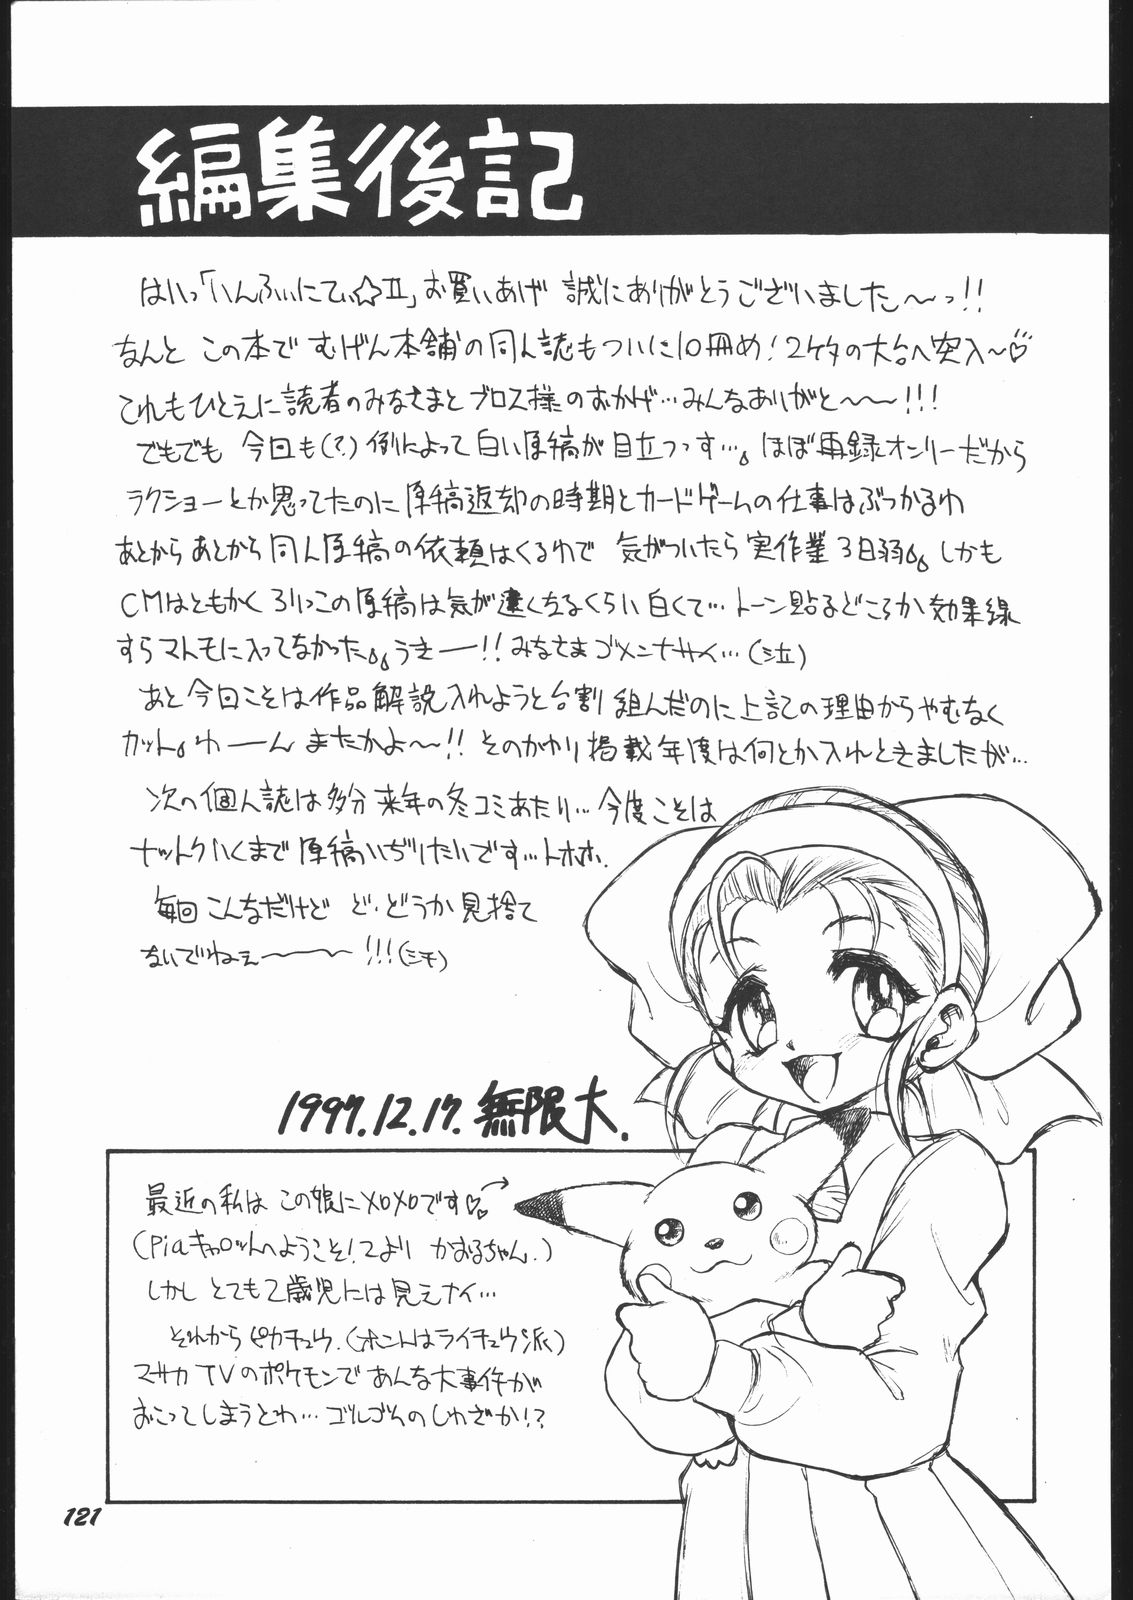 編集後記
はいっ「いんふぃにてぃ☆II」お買いあげ 誠にありがとうございました〜っ!!
なんと この本で むげん本舗の同人誌もついに10冊め!2ケタの大台へ突入〜♡
これもひとえに読者のみなさまとブロス様のおかげ…みんなありがと〜〜〜!!!
でもでも 今回も(?)例によって白い原稿が目立つっす…。ほぼ再録オンリーだから
ラクショーとか思ってたのに 原稿返却の時期とカードゲームの仕事はぶつかるわ
あとからあとから同人原稿の依頼はくるわで 気がついたら実作業3日弱。。しかも
CMはともかく ろりっこの原稿は気が遠くなるくらい白くて…トーン貼るどころか効果線
すらマトモに入ってなかった。。うきーー!!みなさまゴメンナサイ…(泣)
あと今回こそは作品解説入れようと台割 組んだのに上記の理由からやむなく
カット。わーーん またかよ〜!!そのかわり掲載年度は何とか入れときましたが…
次の個人誌は多分来年の冬コミあたり…今度こそは
ナットクいくまで原稿いぢりたいです…トホホ.
毎回こんなだけど ど、どうか見捨て
ないでねぇー〜〜〜!!!(汗)
1997.12.17.無限大.
最近の私は この娘にメロメロです♡→
(Piaキャロットへようこそ!2より かおるちゃん.)
しかし とても2歳児には見えナイ…
それからピカチュウ.(ホントはライチュウ派)
マサカTVのポケモンで あんな大事件が
おこってしまうとわ…ゴルゴムのしわざか!?
121